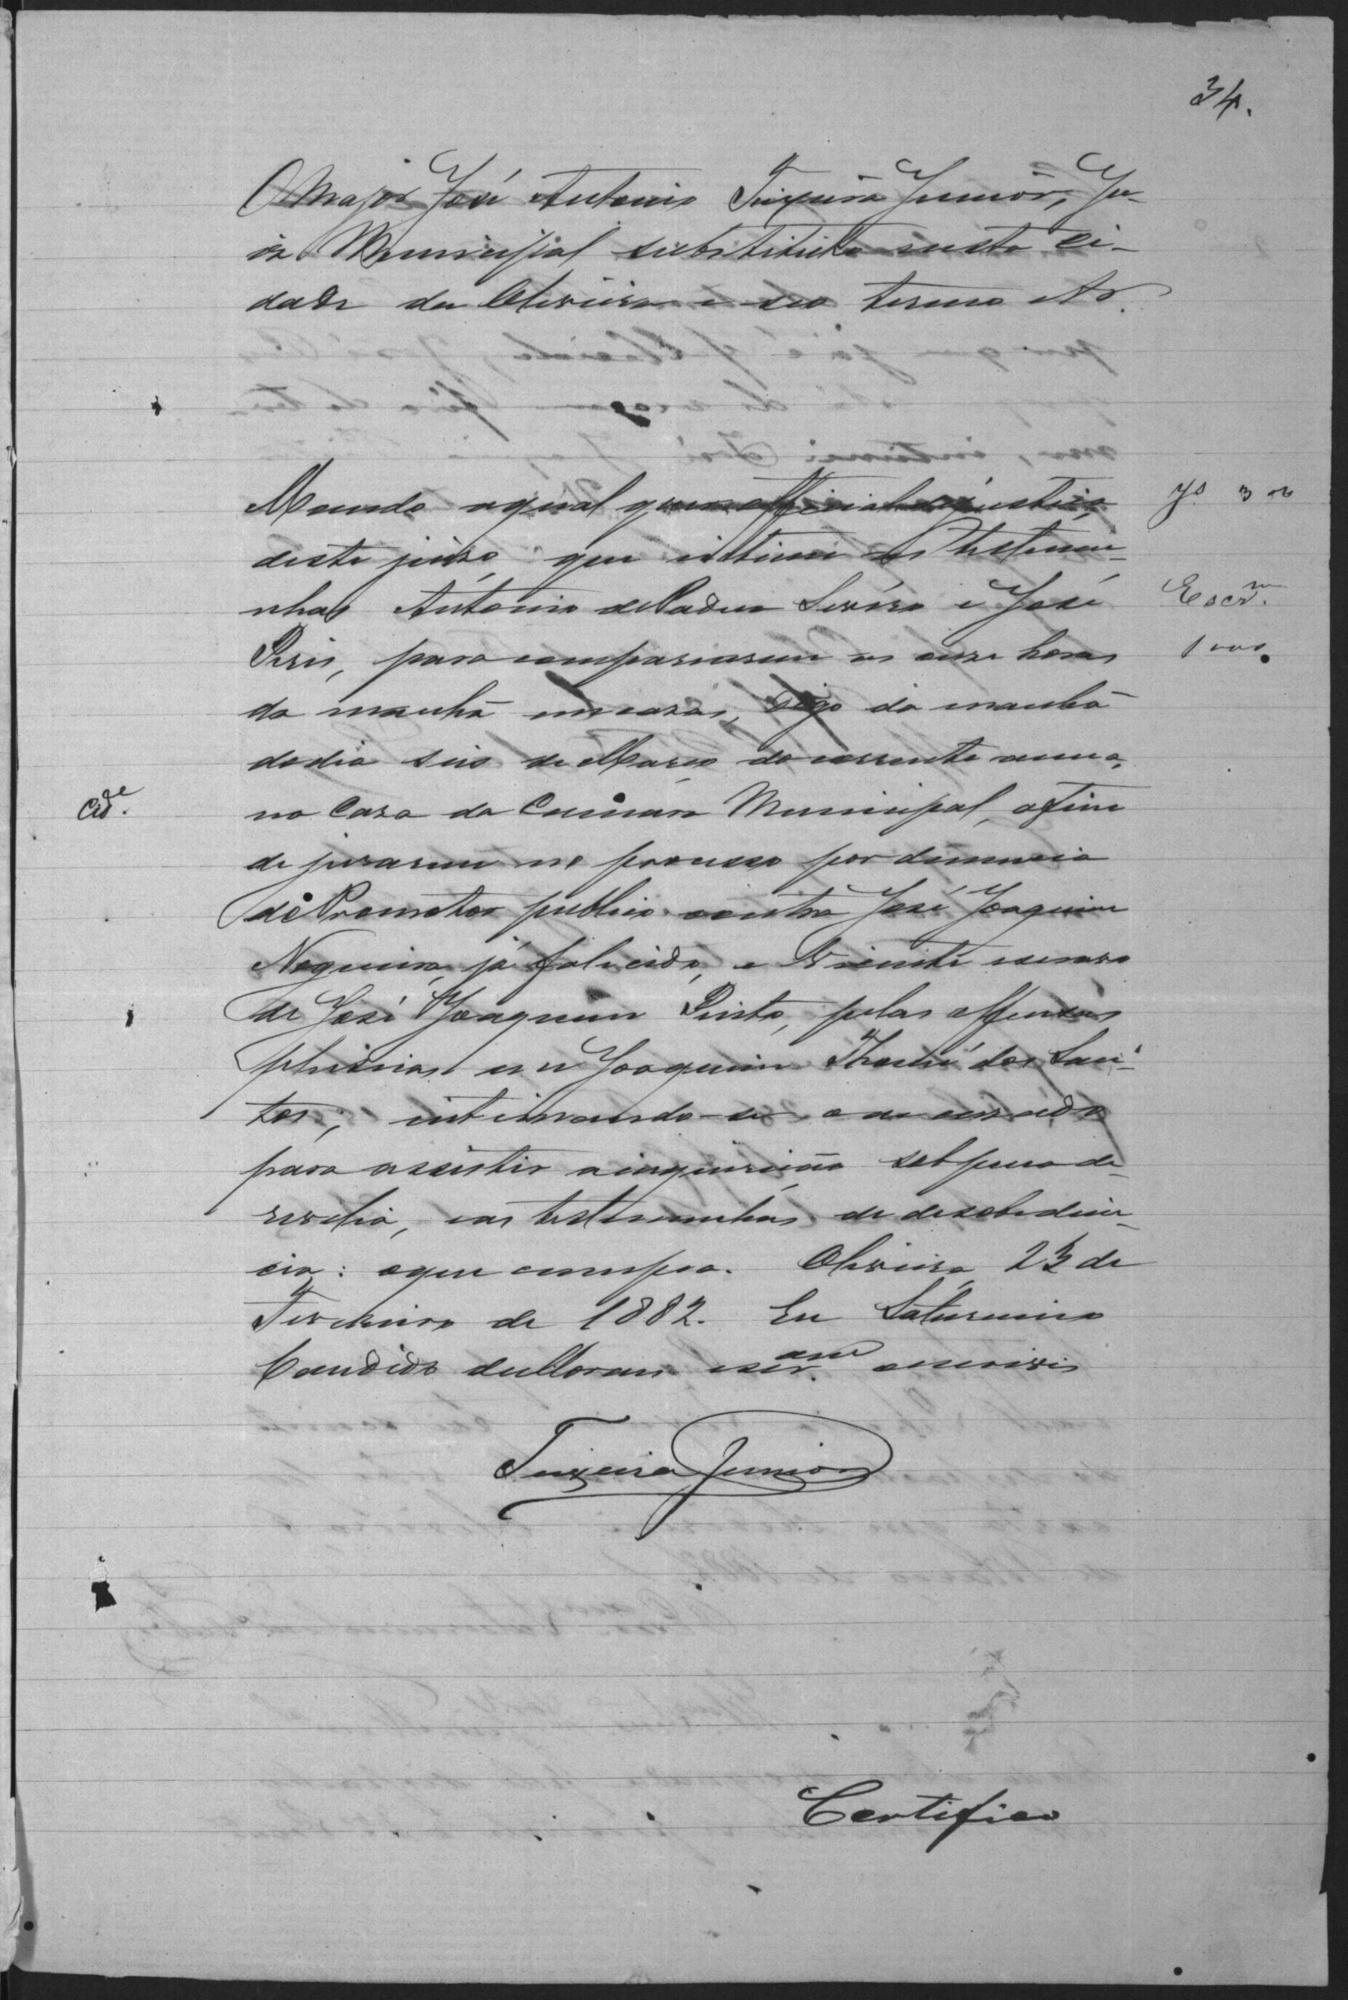 34.
O Major José Antonio Teixeira Junior, Ju-
iz Municipal substituto nesta Ci-
dade da Oliveira e seo termo
Mando aqual quer official de justiça
deste juizo, que intime as testemu-
nhas Antonio de Padua e José
Pires, para comparecerem as onze horas
da manhã em casa, digo da manhã
do dia seis de Março do corrente anno,
na Casa da Camara Municipal, afim
de jurarem no processo por denuncia
do Promotor publico contra José Joaquim
Nogueira, já falicido, e Vicente escravo
de José Joaquim Pinto, pelas offensas
phisicas em Joaquim Thomé dos San-
tos; intimando-se o accusado
para assistir a inquirição sob pena de
revelia, e as testemunhas de desobedien-
cia: o que cumpra. Oliveira 23 de
Fevereiro de 1882. Eu Saturnino
Candido de Moraes escr. o escrevi
Teixeira Junior
Certifico